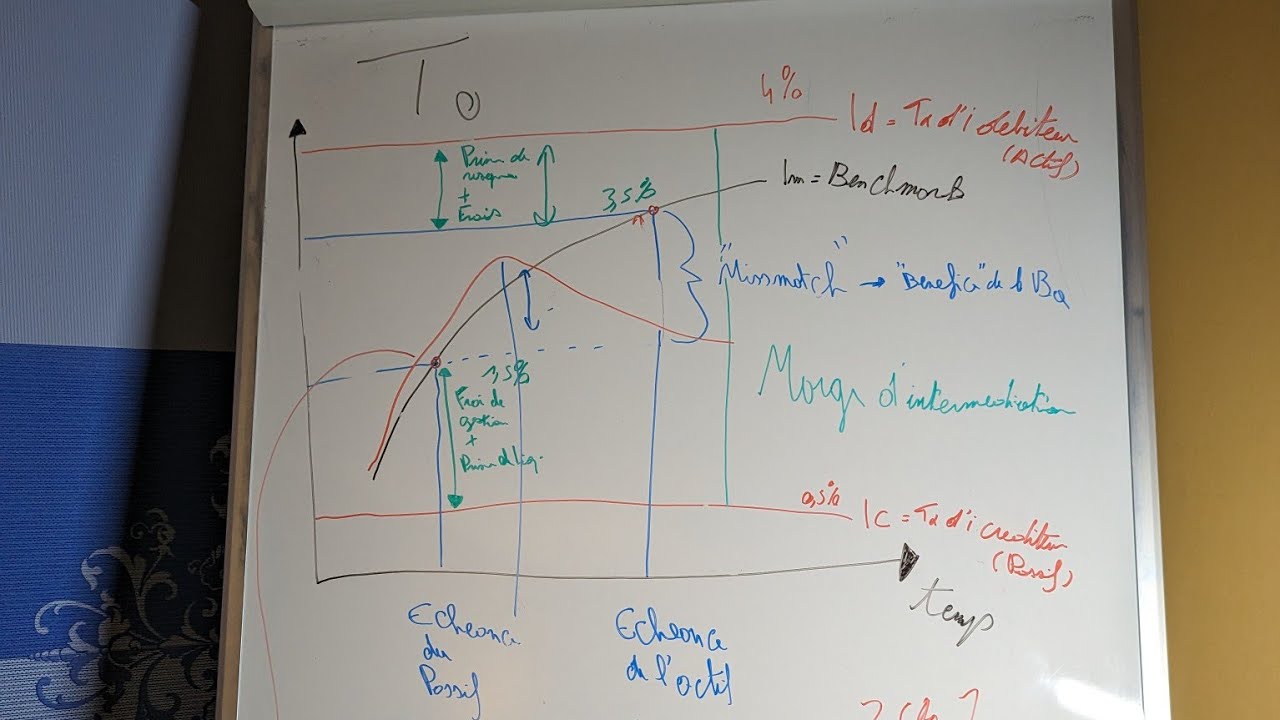 T0
4%
Id = Tx d'i debiteur
(Actif)
Prime de
risque
+
Frais
3,5%
Im = Benchmark
"Missmatch" → "Benefice" de la Bq
1,5%
Frai de
gestion
+
Prime de liq.
Marge d'intermediation
0,5%
Ic = Tx d'i crediteur
(Passif)
temps
Echeance
du
Passif
Echeance
de l'actif